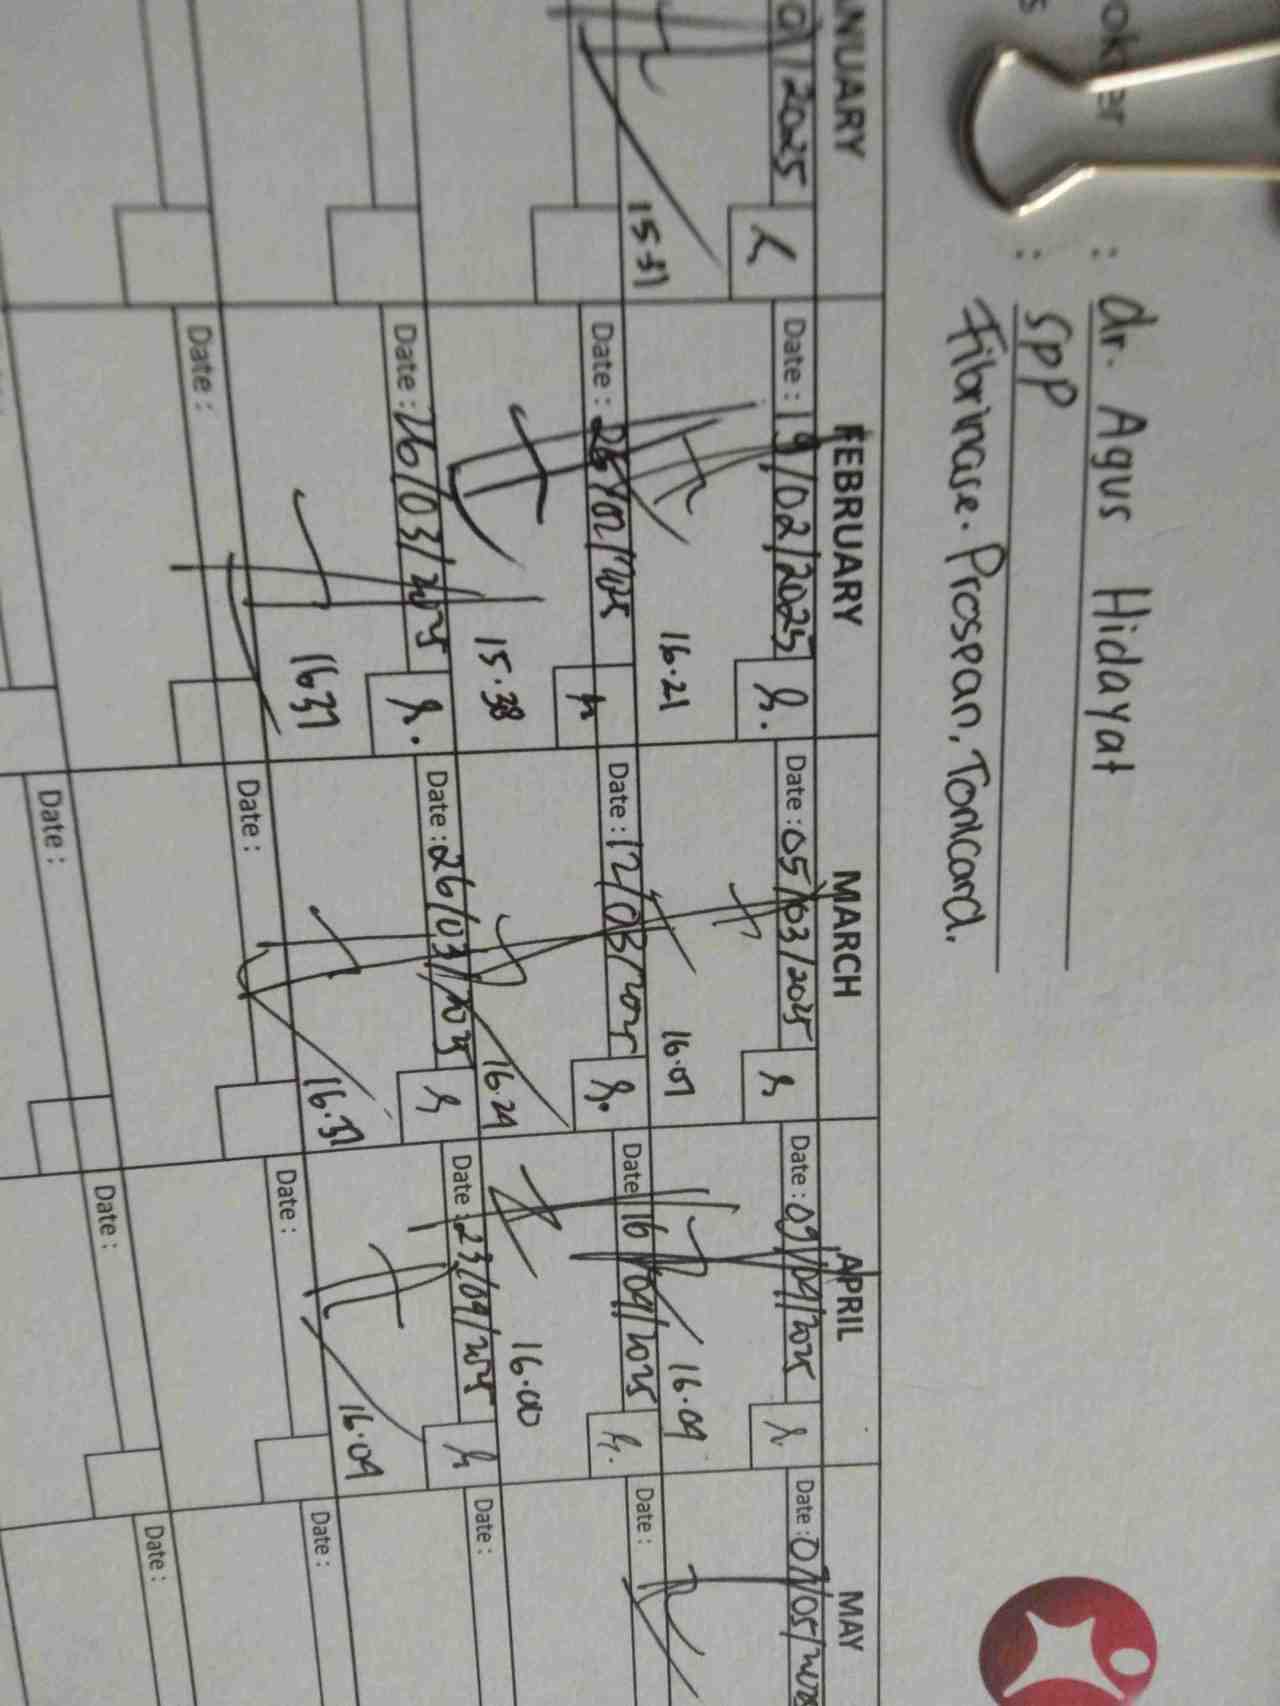 : dr. Agus Hidayat
: SPP
Fibrinase. Prospan, Tonicard.
FEBRUARY MARCH APRIL MAY
/2025
Date : 19/02/2025 Date : 05/03/2025 Date : 09/04/2025 Date : 07/05/
15.37 16.21 16.07 16.09
Date : 26/02/2025 Date : 12/03/2025 Date : 16/04/2025 Date :
15.38 16.29 16.00
Date : 26/03/2025 Date : 26/03/2025 Date : 23/04/2025 Date :
16.37 16.37 16.09
Date : Date : Date : Date :
Date : Date : Date :